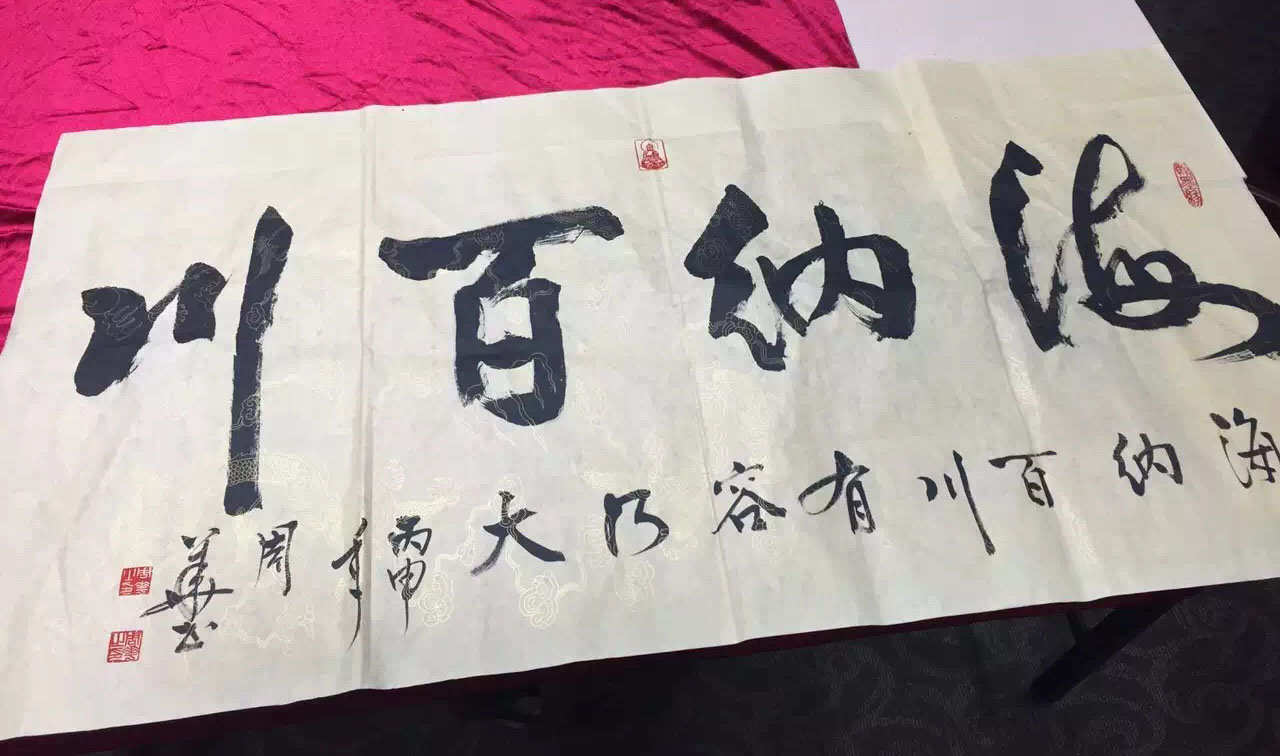 海纳百川
海纳百川有容乃大
丙申年
周華书